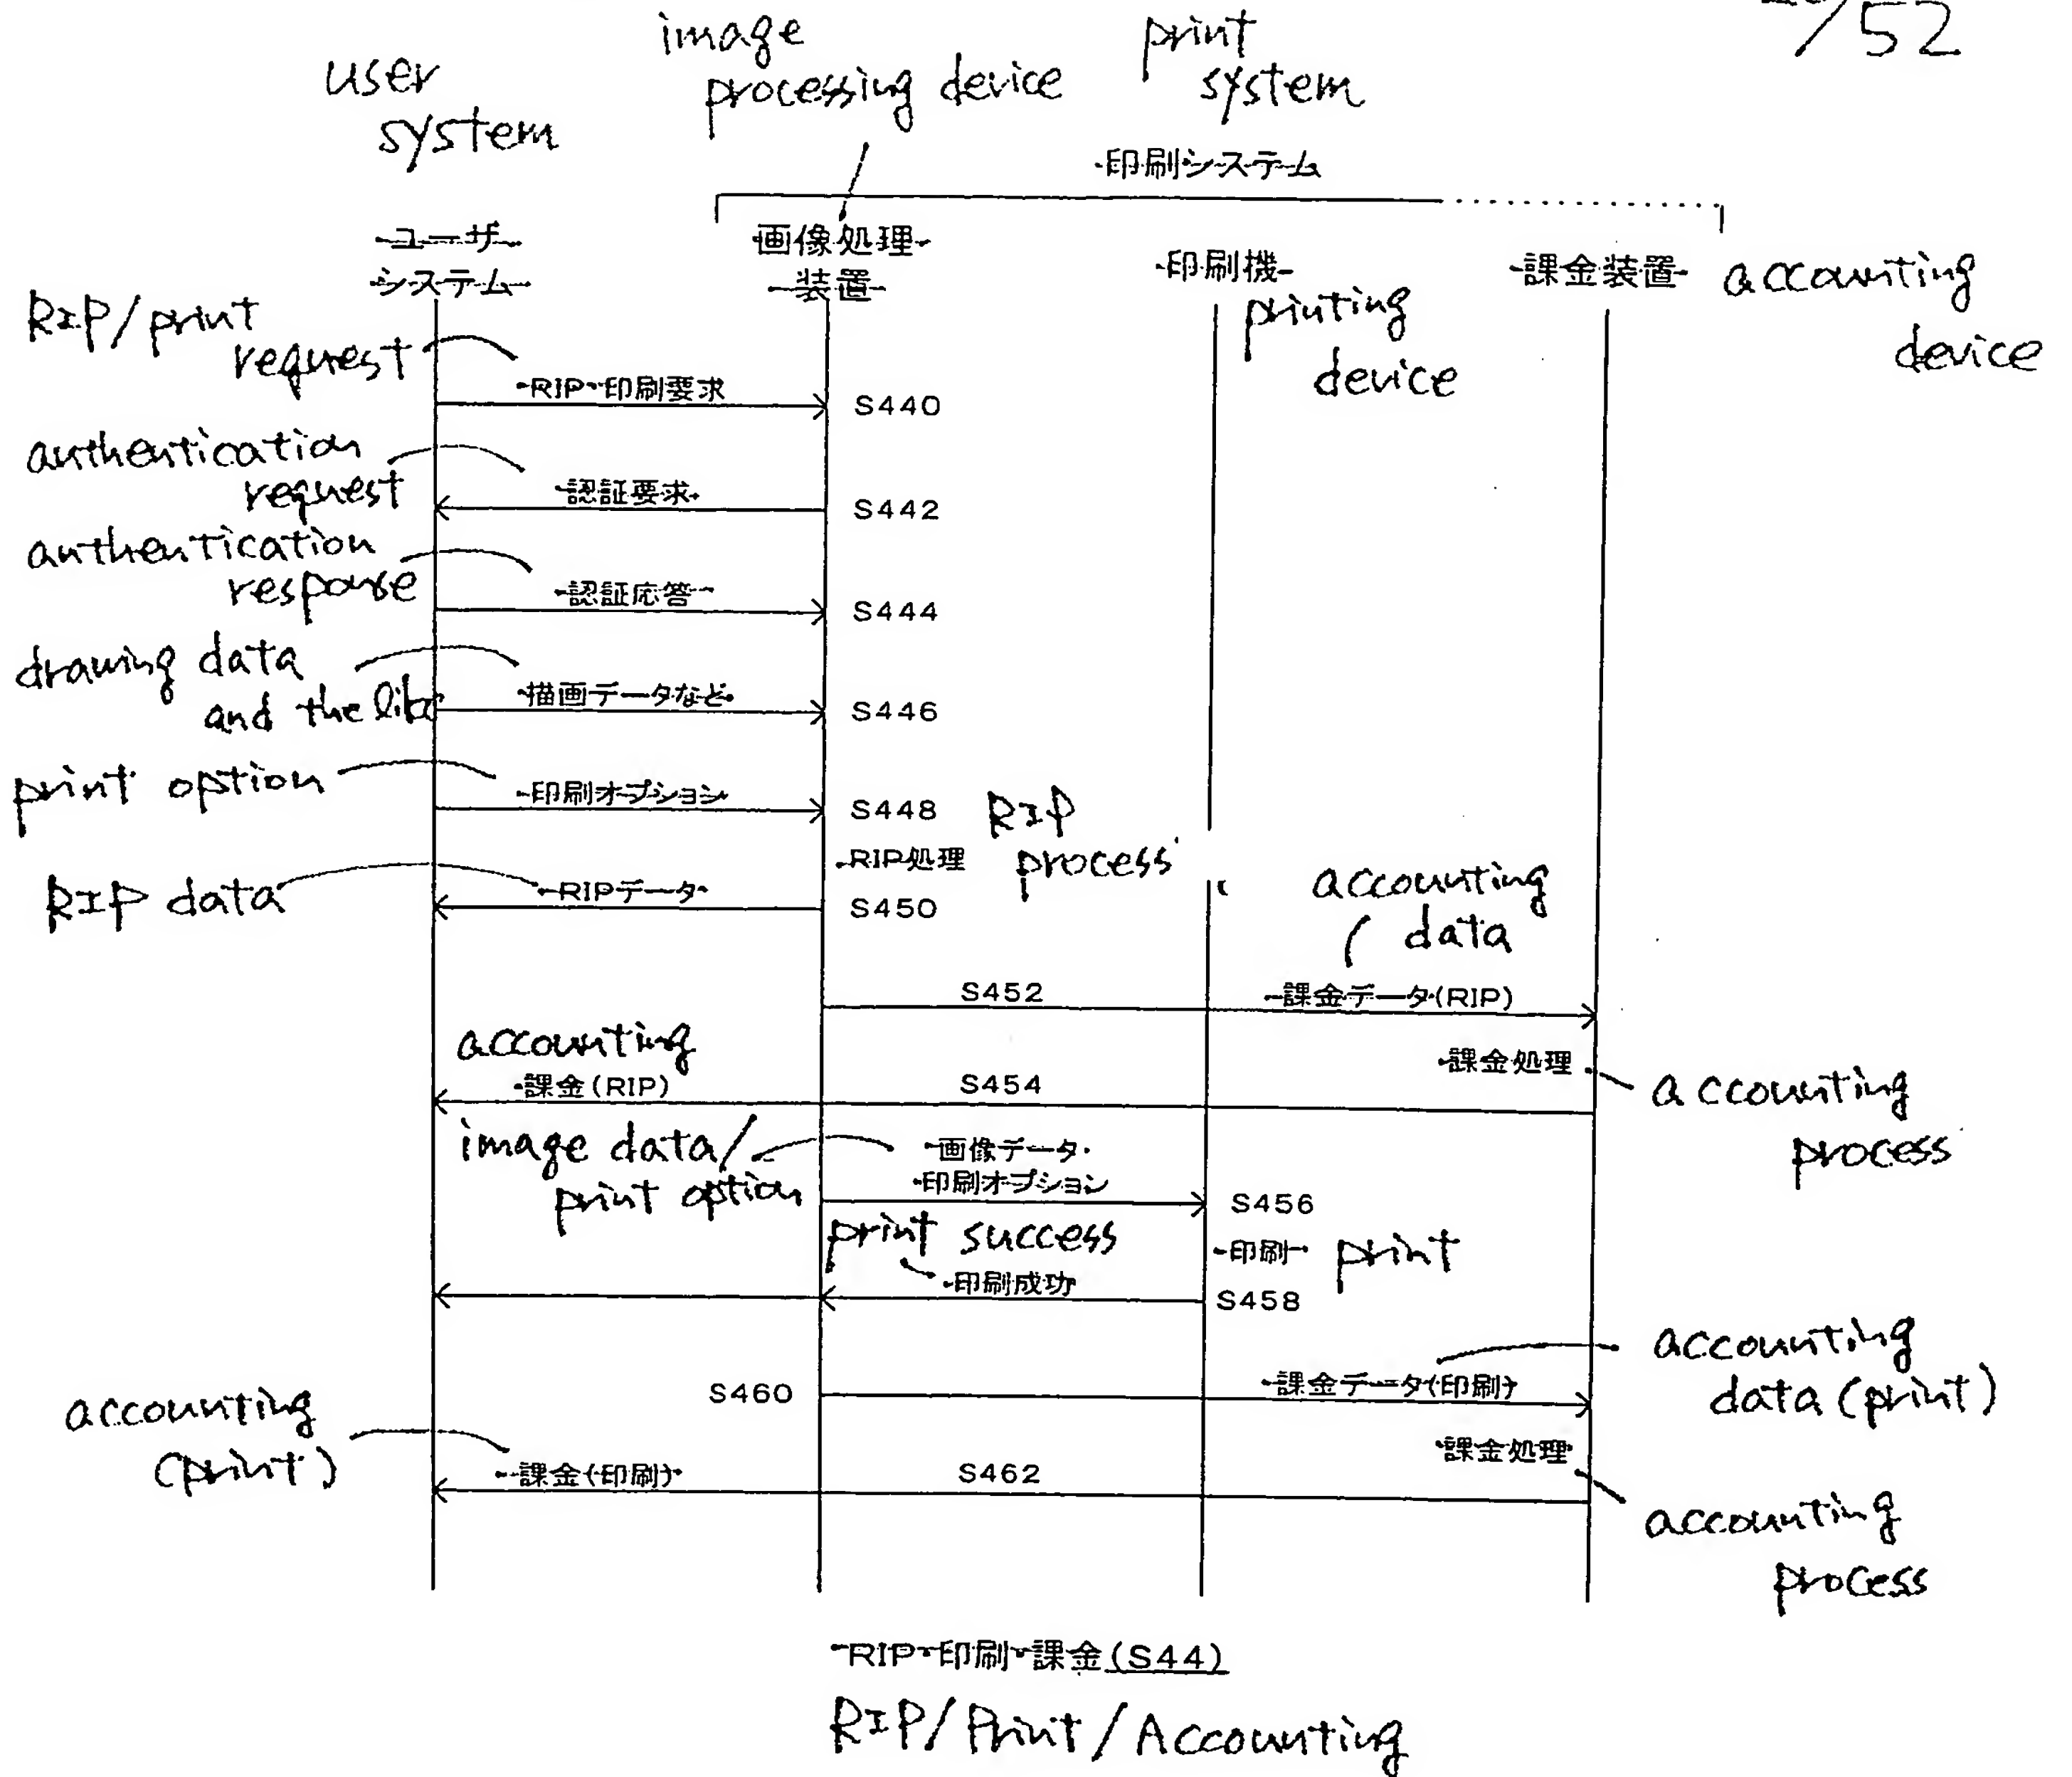 /52
image
processing device
print
system
user
system
印刷システム
ユーザ
システム
画像処理
装置
印刷機
課金装置
accounting
device
printing
device
RIP/print
request
RIP・印刷要求
S440
authentication
request
認証要求
S442
authentication
response
認証応答
S444
drawing data
and the like
描画データなど
S446
print option
印刷オプション
S448
RIP処理
RIP
process
RIP data
RIPデータ
S450
accounting
data
S452
課金データ(RIP)
accounting
課金処理
accounting
process
課金(RIP)
S454
image data/
print option
画像データ・
印刷オプション
S456
print success
印刷
print
印刷成功
S458
accounting
data (print)
S460
課金データ(印刷)
accounting
(print)
課金処理
accounting
process
課金(印刷)
S462
RIP・印刷・課金(S44)
RIP/Print/Accounting